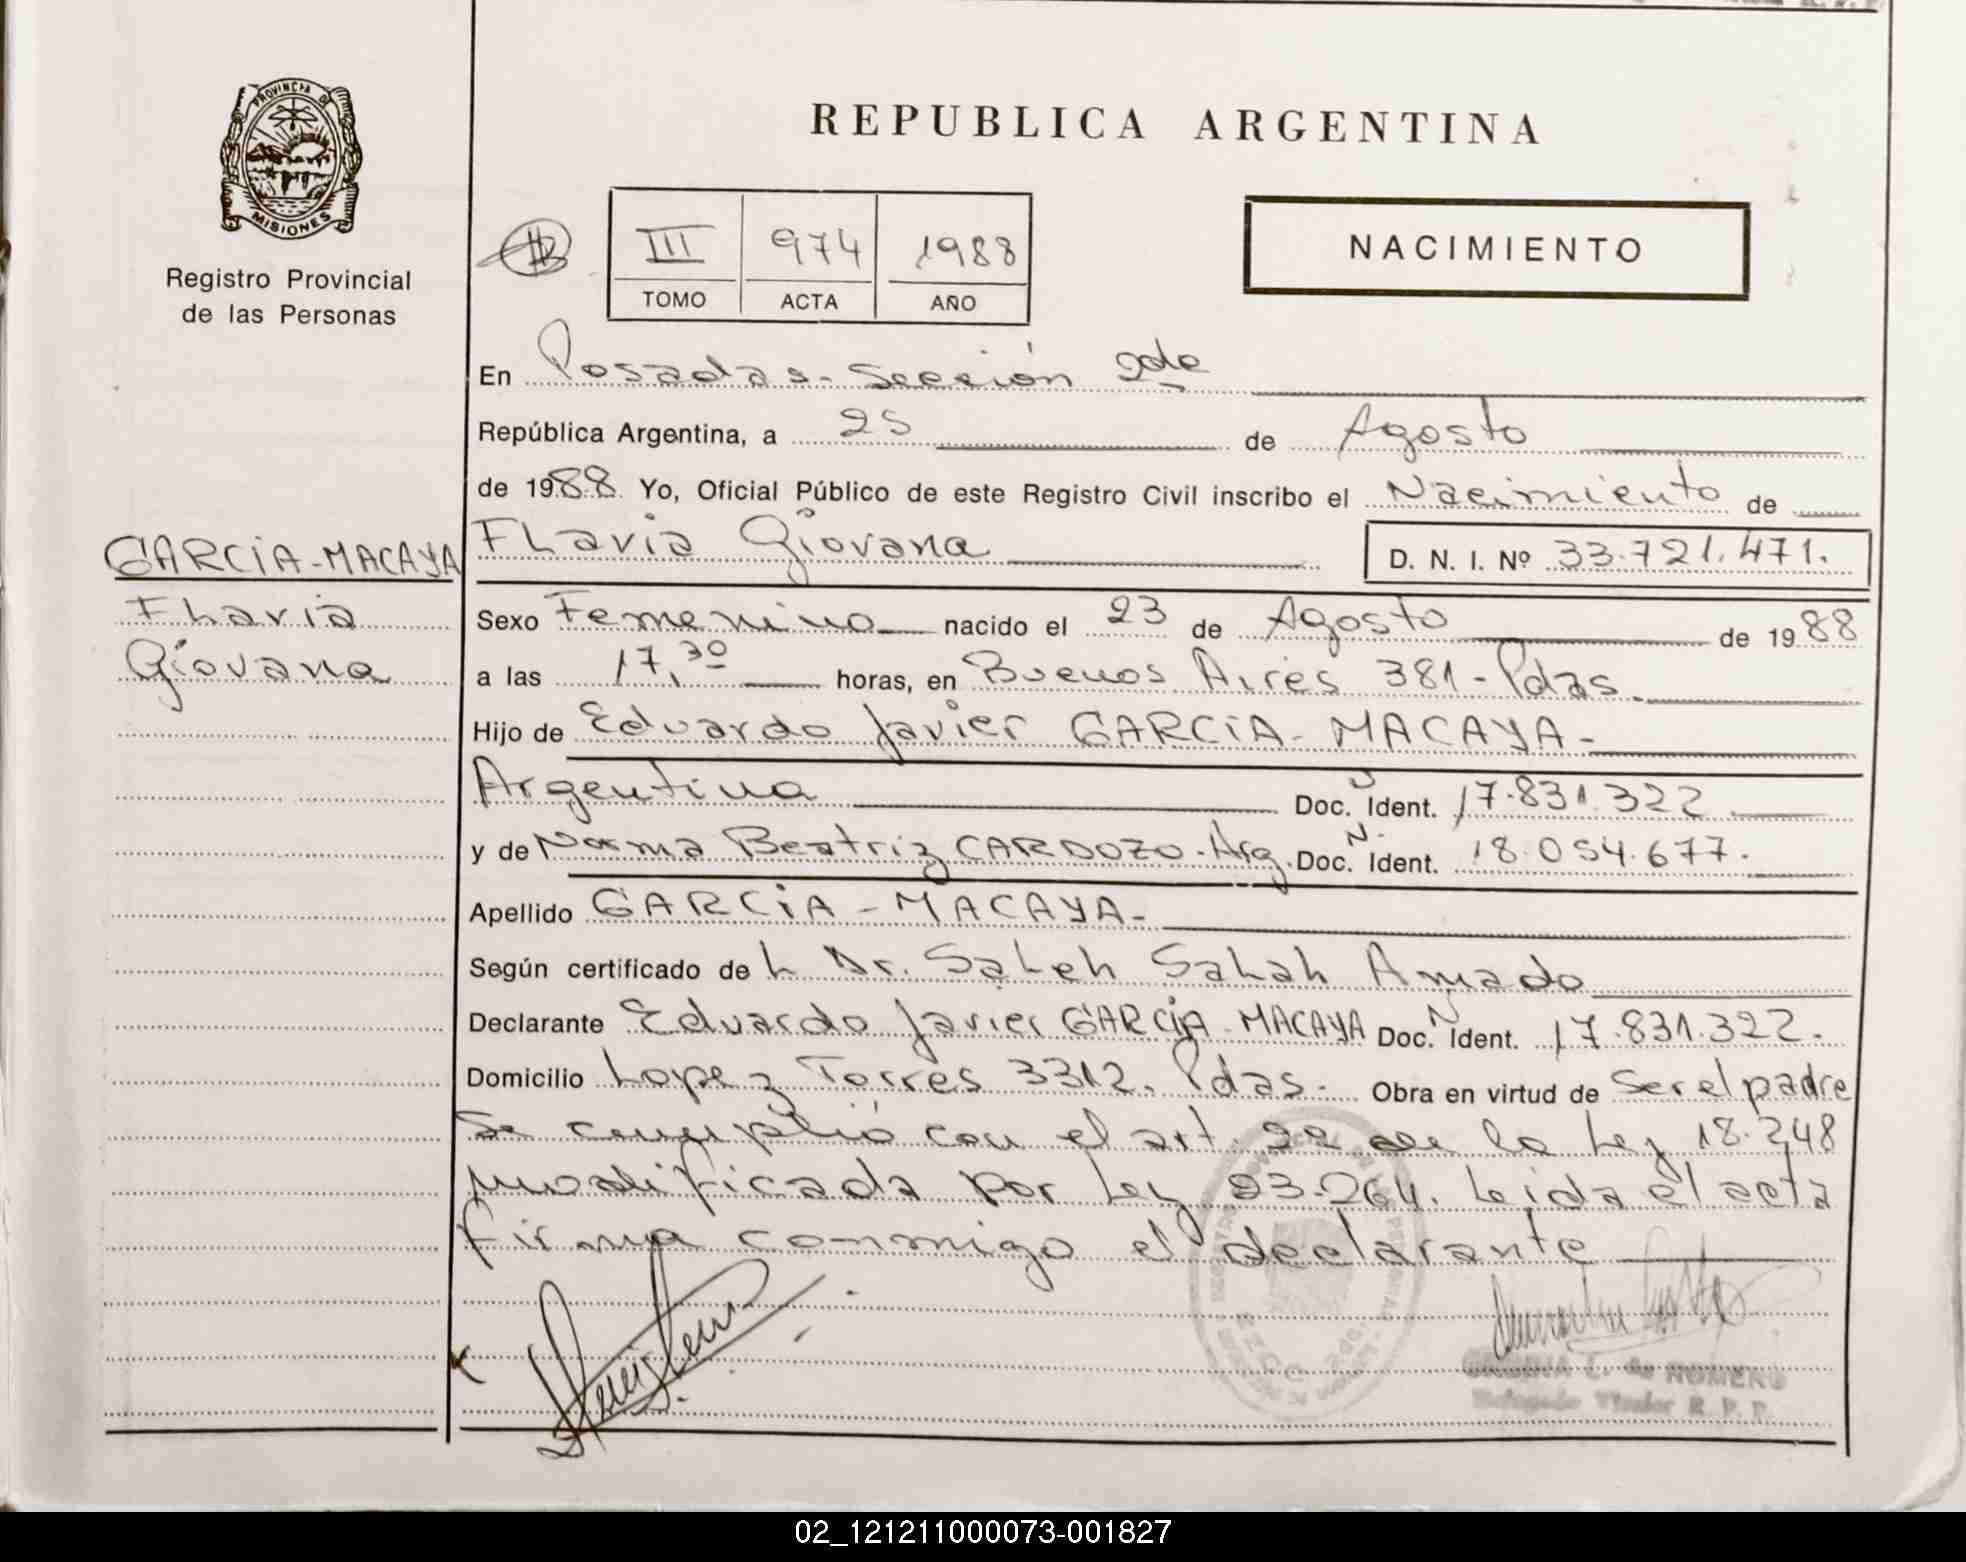 PROVINCIA DE
MISIONES
Registro Provincial
de las Personas
REPUBLICA ARGENTINA
III 974 1988
TOMO ACTA AÑO
NACIMIENTO
En Posadas - Sección 2da
República Argentina, a 25 de Agosto
de 1988. Yo, Oficial Público de este Registro Civil inscribo el Nacimiento de
GARCIA-MACAYA
Flavia
Giovana
Flavia Giovana D. N. I. Nº 33.721.471.
Sexo Femenino nacido el 23 de Agosto de 1988
a las 17,30 horas, en Buenos Aires 381 - Pdas.
Hijo de Eduardo Javier GARCIA - MACAYA -
Argentina Doc. N Ident. 17.831.322
y de Norma Beatriz CARDOZO - Arg. Doc. N. Ident. 18.054.677.
Apellido GARCIA - MACAYA -
Según certificado de L Dr. Saleh Salah Amado
Declarante Eduardo Javier GARCIA - MACAYA Doc. N Ident. 17.831.322.
Domicilio Lopez Torres 3312. Pdas. Obra en virtud de ser el padre
Se cumplió con el art. 22 de la Ley 18.248
modificada por Ley 23.264. Leida el acta
firma conmigo el declarante
de ROMERO
Delegado Titular R. P. P.
02_121211000073-001827